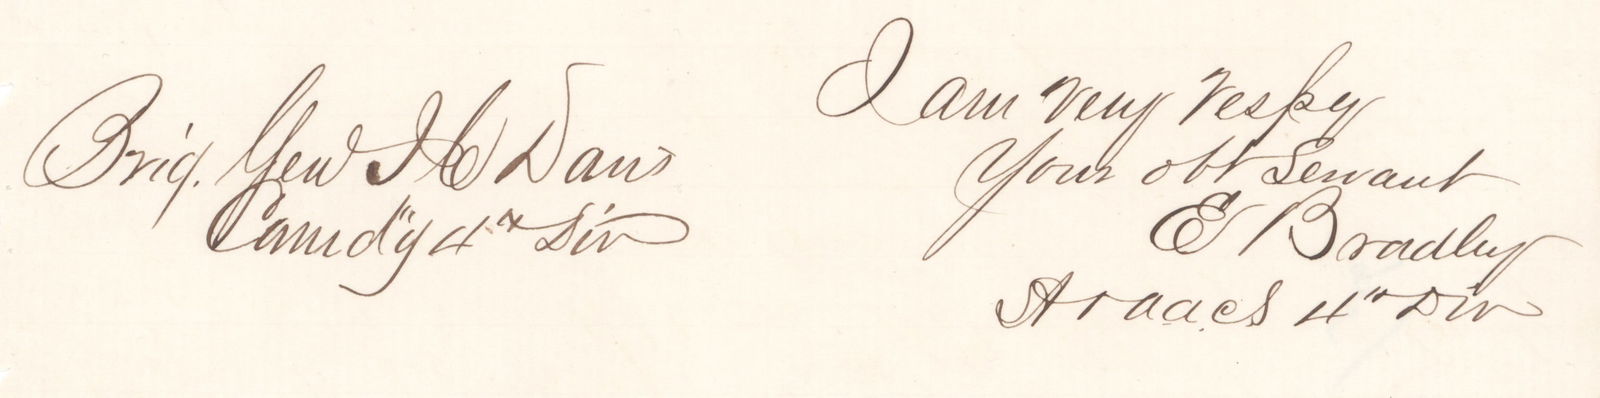 Brig. Gen J C Davis
Comdg 4th Div
I am very respy
Your obt Servant
E Bradley
4th Div